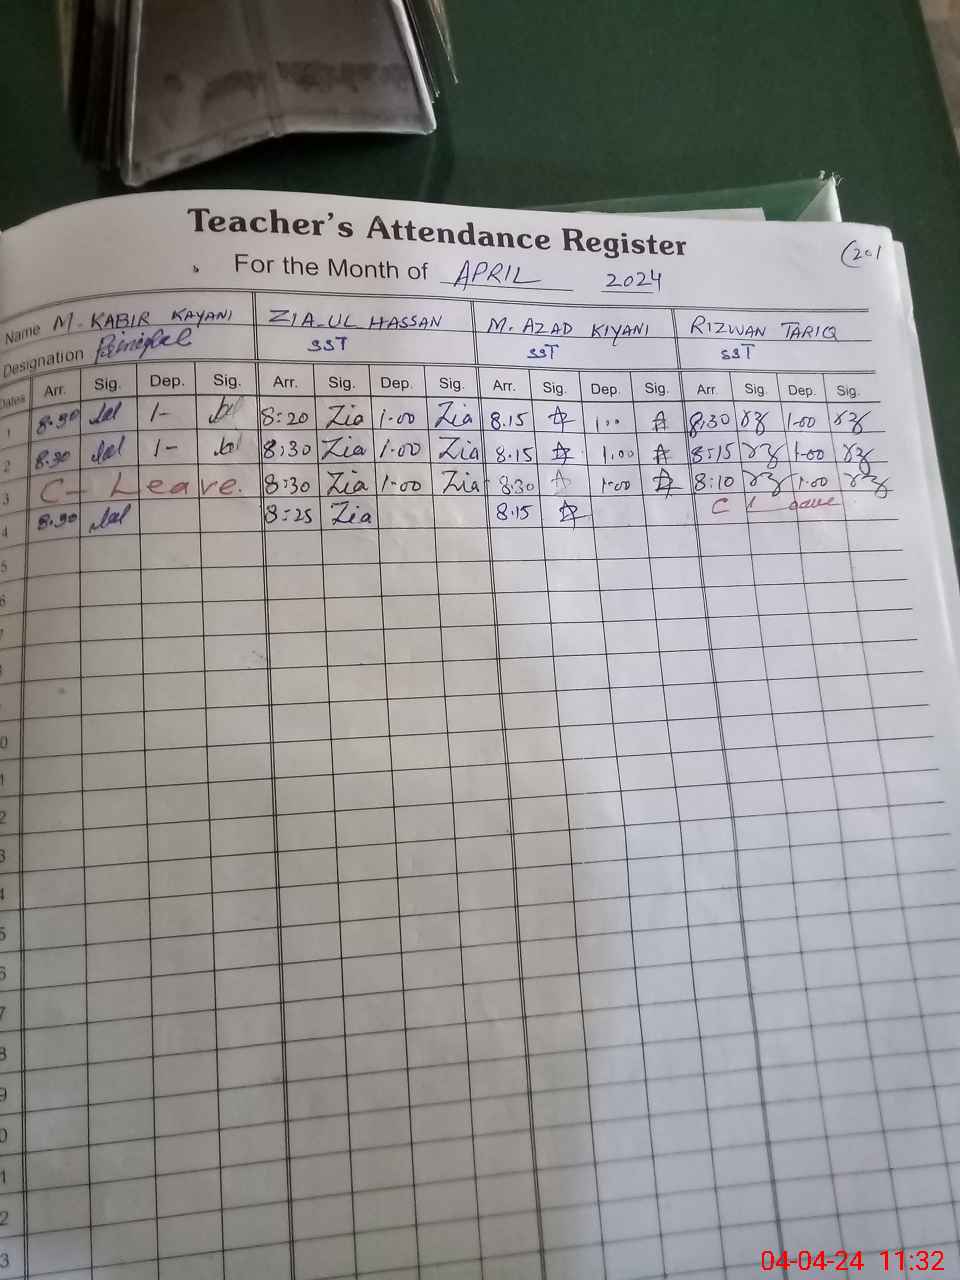 Teacher's Attendance Register
For the Month of APRIL 2024
(201
Name M. KABIR KAYANI ZIA-UL HASSAN M. AZAD KIYANI RIZWAN TARIQ
Designation Principal SST SST SST
Dates Arr. Sig. Dep. Sig. Arr. Sig. Dep. Sig. Arr. Sig. Dep. Sig. Arr. Sig. Dep. Sig.
1 8.30 1- 8:20 Zia 1.00 Zia 8.15 1.00 8:30 1.00
2 8.30 1- 8:30 Zia 1.00 Zia 8.15 1.00 8:15 1.00
3 C- Leave. 8:30 Zia 1.00 Zia 8.30 1.00 8:10 1.00
4 8.30 8:25 Zia 8.15 C Leave
5
6
7
0
1
2
3
4
5
6
7
8
9
0
1
2
3
04-04-24 11:32